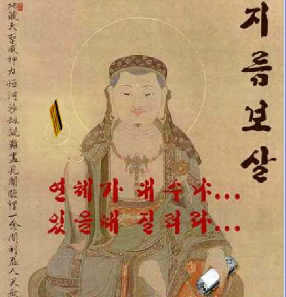 지름보살
연체가 대수냐...
있을때 질러라...
地藏大聖威神力恒河沙劫說難盡見聞瞻禮一念間利益人天